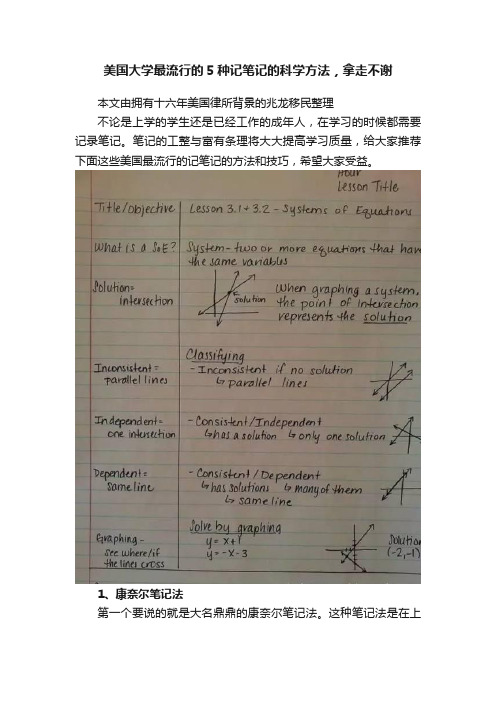 美国大学最流行的5种记笔记的科学方法，拿走不谢
本文由拥有十六年美国律所背景的兆龙移民整理
不论是上学的学生还是已经工作的成年人，在学习的时候都需要
记录笔记。笔记的工整与富有条理将大大提高学习质量，给大家推荐
下面这些美国最流行的记笔记的方法和技巧，希望大家受益。
Hour
Lesson Title
Title/objective
Lesson 3.1+3.2 - Systems of Equations
What is a SoE?
System - two or more equations that have
the same variables
Solution=
intersection
solution
When graphing a system,
the point of intersection
represents the solution
Classifying
Inconsistent =
parallel lines
- Inconsistent if no solution
↳ parallel lines
Independent=
one intersection
- Consistent/Independent
↳has a solution ↳ only one solution
Dependent=
same line
- Consistent / Dependent
↳has solutions ↳ many of them
↳ same line
Graphing -
see where/if
the lines cross
Solve by graphing
y = x+1
y = -x-3
Solution
(-2,-1)
1、康奈尔笔记法
第一个要说的就是大名鼎鼎的康奈尔笔记法。这种笔记法是在上